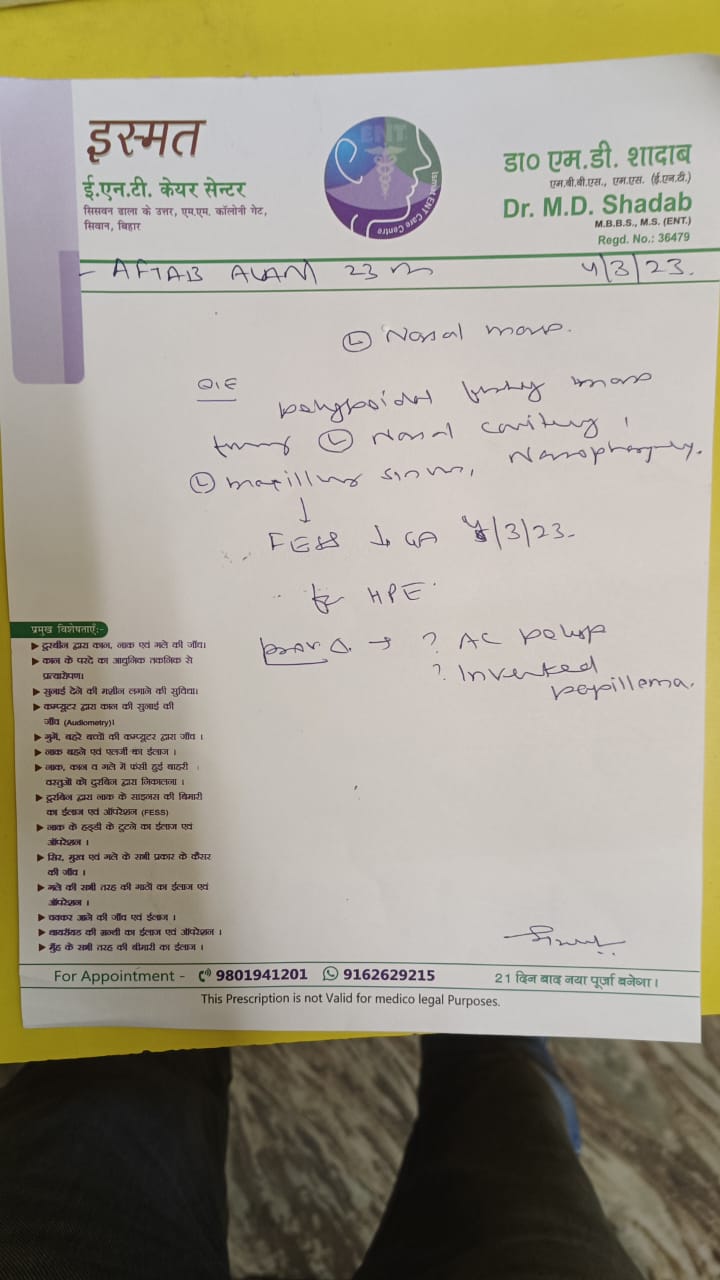 इस्मत
ई.एन.टी. केयर सेन्टर
सिसवन डाला के उत्तर, एम.एम. कॉलोनी गेट,
सिवान, बिहार
ENT
Ismat ENT Care Centre
डा० एम.डी. शादाब
एम.बी.बी.एस., एम.एस. (ई.एन.टी.)
Dr. M.D. Shadab
M.B.B.S., M.S. (ENT.)
Regd. No.: 36479
- AFTAB ALAM 23 m 4/3/23.
(L) Nasal mass.
O/E
polypoidal mass
(L) Nasal cavity,
(L) maxillary sinus, Nasopharynx.
↓
FESS ↓ GA /3/23.
for HPE.
→ ? AC polyp
? Inverted
papilloma.
प्रमुख विशेषताएँ:-
दूरबीन द्वारा कान, नाक एवं गले की जाँच।
कान के परदे का आधुनिक तकनिक से
प्रत्यारोपण।
सुनाई देने की मशीन लगाने की सुविधा।
कम्प्यूटर द्वारा कान की सुनाई की
जाँच (Audiometry)।
गुमें, बहरे बच्चों की कम्प्यूटर द्वारा जाँच ।
नाक बहने एवं एलर्जी का ईलाज ।
नाक, कान व गले में फंसी हुई बाहरी
वस्तुओं को दुरबिन द्वारा निकालना ।
दूरबिन द्वारा नाक के साइनस की बिमारी
का ईलाज एवं ऑपरेशन (FESS)
नाक के हड्डी के टुटने का ईलाज एवं
ऑपरेशन ।
सिर, मुख एवं गले के सभी प्रकार के कैंसर
की जाँच ।
गले की सभी तरह की गाठों का ईलाज एवं
ऑपरेशन ।
चक्कर आने की जाँच एवं ईलाज ।
थायरॉयड की ग्रन्थी का ईलाज एवं ऑपरेशन ।
मुँह के सभी तरह की बीमारी का ईलाज ।
For Appointment - 9801941201 9162629215 21 दिन बाद नया पूर्जा बनेगा ।
This Prescription is not Valid for medico legal Purposes.